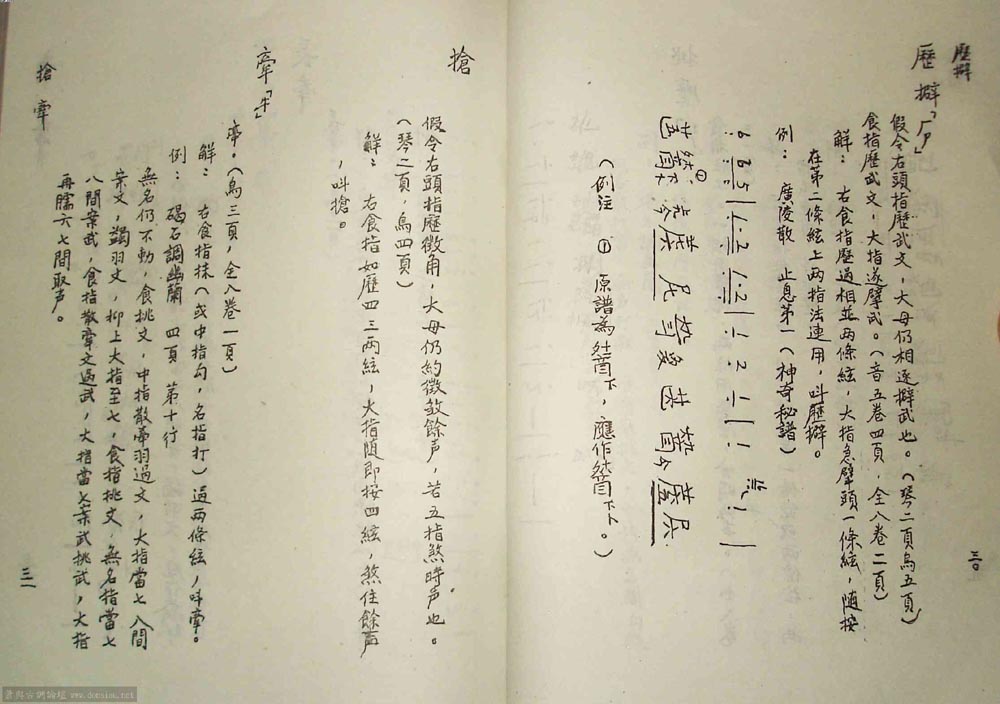 歷擗
三〇
歷擗「厂尸」
假令右頭指歷武文，大母仍相逐擗武也。（琴二頁烏五頁）
食指歷武文，大指遂擘武。（音五卷四頁，全八卷二頁）
解： 右食指歷過相並兩條絃，大指急擘頭一條絃，隨按
在第二條絃上兩指法連用，叫歷擗。
例： 廣陵散 止息第一（神奇秘譜）
（例注 ① 原譜為
下，應作
下卜。）
搶
假令右頭指歷徵角，大母仍約徵殺餘声，若五指煞時声也。
（琴二頁，烏四頁）
解： 右食指如歷四三兩絃，大指随即按四絃，煞住餘声
，叫搶。
牽「牛」
牵。（烏三頁，全八卷一頁）
解： 右食指抹（或中指勾，名指打）過兩條絃，叫牽。
例： 碣石調幽蘭 四頁 第十行
無名仍不動，食挑文，中指散牽羽過文，大指當七八間
案文，蠲羽文，抑上大指至七，食指挑文，無名指當七
八間案武，食指散牽文過武，大指當七案武挑武，大指
再臑六七間取声。
搶 牽
三一
www.dorsimu.net